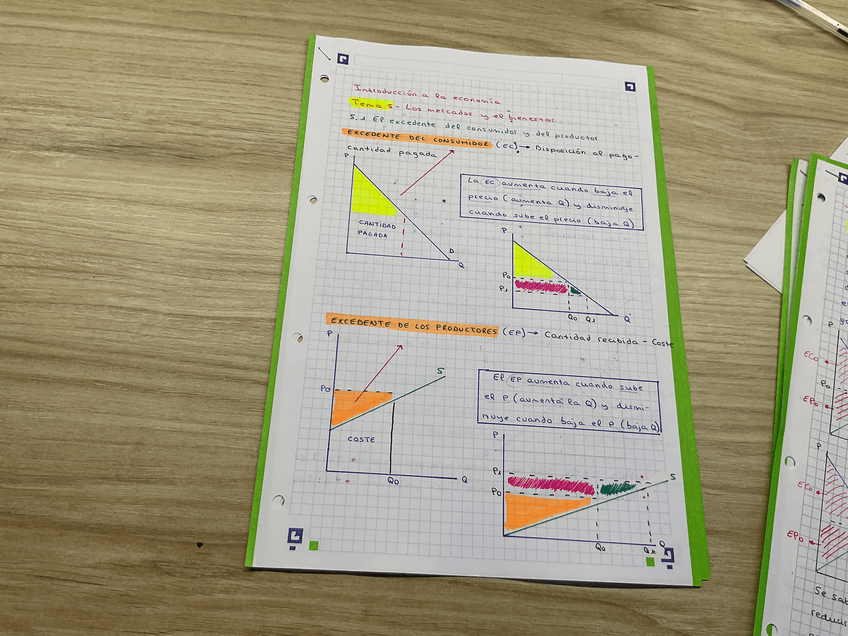 Introducción a la economía
Tema 5.- Los mercados y el bienestar
5.1 El excedente del consumidor y del productor
EXCEDENTE DEL CONSUMIDOR (EC) → Disposición al pago -
cantidad pagada
P
CANTIDAD
PAGADA
D
Q
La EC aumenta cuando baja el
precio (aumenta Q) y disminuye
cuando sube el precio (baja Q)
P
P0
P1
Q0 Q1 Q
EXCEDENTE DE LOS PRODUCTORES (EP) → Cantidad recibida - Coste
P
P0
S
COSTE
Q0
Q
El EP aumenta cuando sube
el P (aumenta la Q) y dismi-
nuye cuando baja el P (baja Q)
P
P1
P0
S
Q0
Q1
Q
P
EC0
P0
EP0
P
EC0
EP0
Se sab
reducir